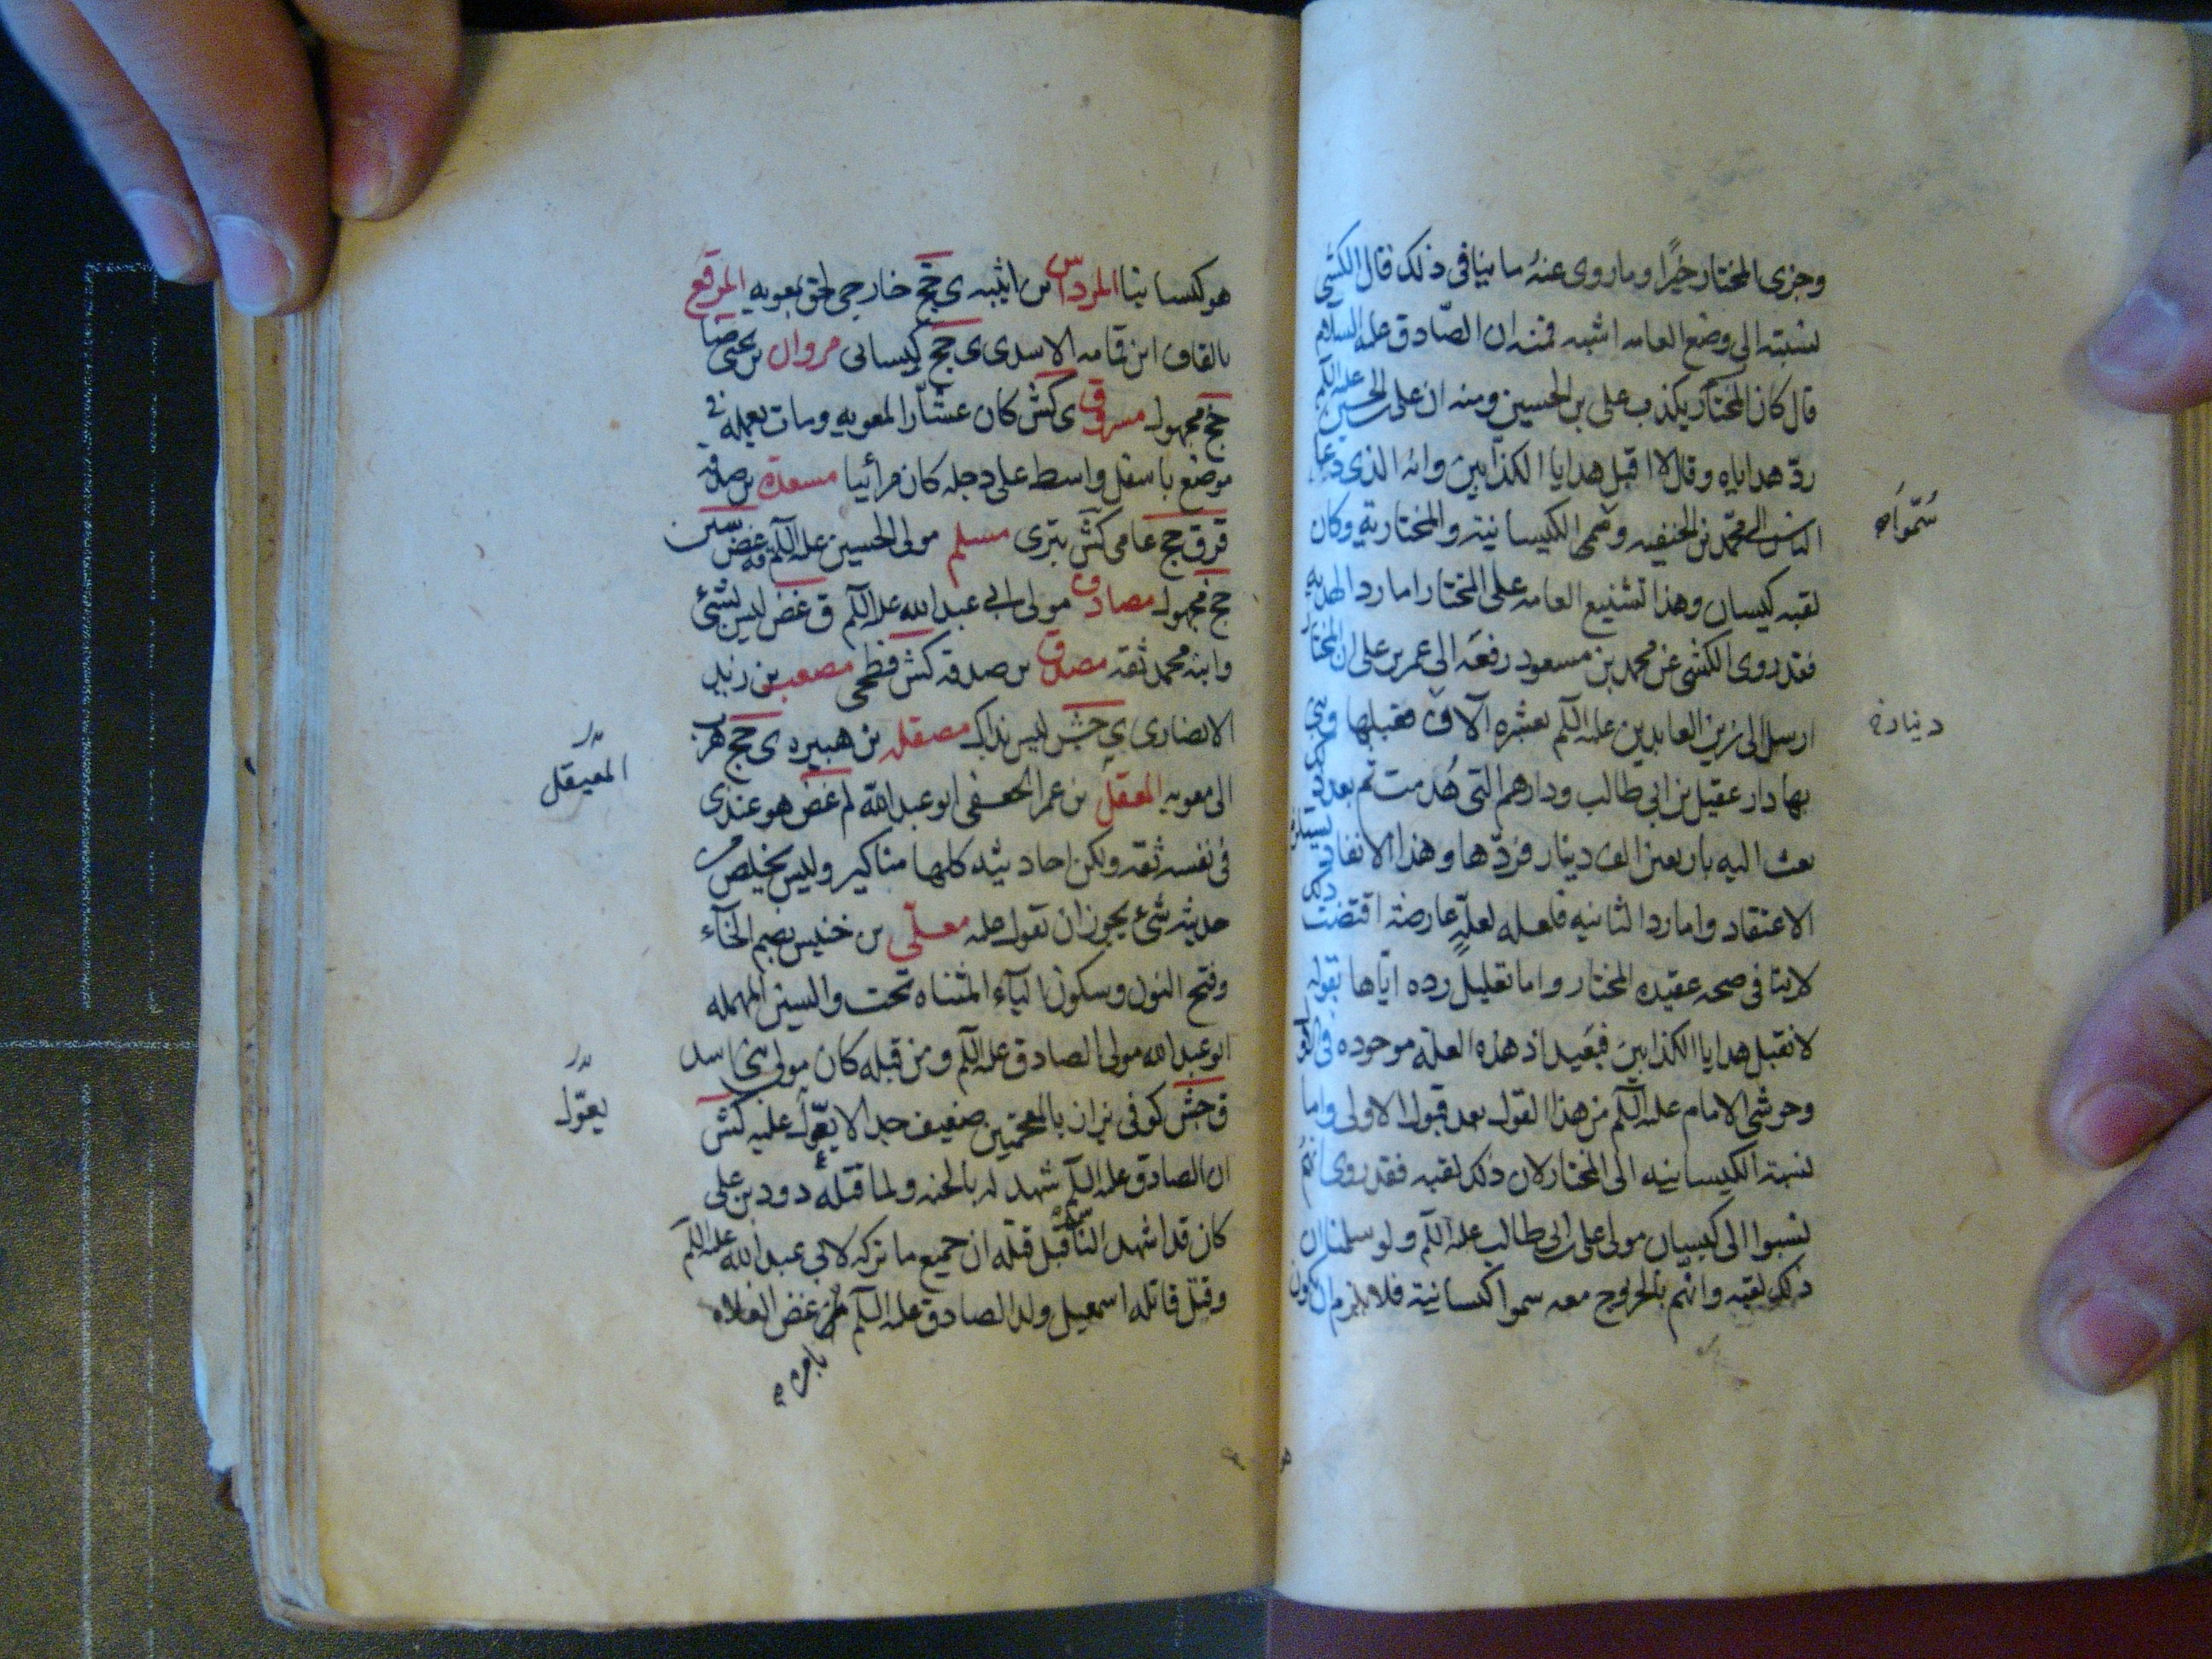 وجزى المختار خيرا وما روى عنه ما ينافى ذلك قال الكشى
نسبته الى وضع العامه اشبه فمنه ان الصادق عليه السلام
قال كان المختار يكذب على على بن الحسين ومنه ان على بن الحسين عليه السلم
ردّ هداياه وقال لا اقبل هدايا الكذابين وانه الذى دعا
الناس الى محمد بن الحنفيه وهم الكيسانية والمختارية وكان
سُمّوا
لقبه كيسان وهذا تشنيع العامه على المختار اما رد الهديه
فقد روى الكشى عن محمد بن مسعود رفعه الى عمر بن على ان المختار
ارسل الى زين العابدين عليه السلم بعشره آلاف فقبلها وبنى
دينار
بها دار عقيل بن ابى طالب ودارهم التى هُدمت ثم بعد
بعث اليه باربعين الف دينار فردّها وهذا الانفاد
الاعتقاد واما رد الثانيه فلعله لعلّةٍ عارضة اقتضت
لا بتا فى صحه عقيده المختار واما تعليل رده ايّاها بقوله
لا نقبل هدايا الكذابين فبعيد اذ هذه العله موجوده فى
وحوشى الامام عليه السلم من هذا القول بعد قبول الاولى واما
نسبة الكيسانيه الى المختار لان ذلك لقبه فقد روى انهم
نسبوا الى كيسان مولى على بن ابى طالب عليه السلم ولو سلمنا ان
ذلك لقبه وانهم بالخروج معه سموا كيسانية فلا يلزم ان يكون
هو كيسانيا المرداس بن اثيبه ى جخ خارجى لحق بمعويه المرقع
بالقاف ابن قمامه الاسدى ى جخ كيسانى مروان بن يحيى ضا
جخ مجهول مسروق ى كش كان عشّارا لمعويه ومات بعمله فى
موضع باسفل واسط على دجله كان مرائيا مسعدة بن صدقه
قر ق جخ عامى كش بترى مسلم مولى الحسين عليه السلم
جخ مجهول مصادف مولى ابى عبد الله عليه السلم ق غض ليس بشئ
وابنه محمد ثقه مصدق بن صدقه كش فطحى مصعب بن يزيد
الانصارى ى جش ليس بذاك مصقله بن هبيره ى جخ هرب
الى معويه المعقل بن عمر الجعفى ابو عبد الله لم غض هو عندى
المعيقل
فى نفسه ثقه ولكن احاديثه كلها مناكير وليس يخلص من
حديثه شئ يجوز ان نقول عليه معلّى بن خنيس بضم الخاء
وفتح النون وسكون الياء المثناه تحت والسين المهمله
ابو عبد الله مولى الصادق عليه السلم ومن قبله كان مولى بنى اسد
ق جش كوفى بزاز بالمعجمتين ضعيف جدا لا يعّول عليه كش
يعوّل
ان الصادق عليه السلم شهد له بالجنه ولما قتله داود بن على
كان قد اشهد الناس قبل قتله ان جميع ما تركه لابى عبد الله عليه السلم
وقتل قاتله اسمعيل ولد الصادق عليه السلم غض الغلاه
بامره